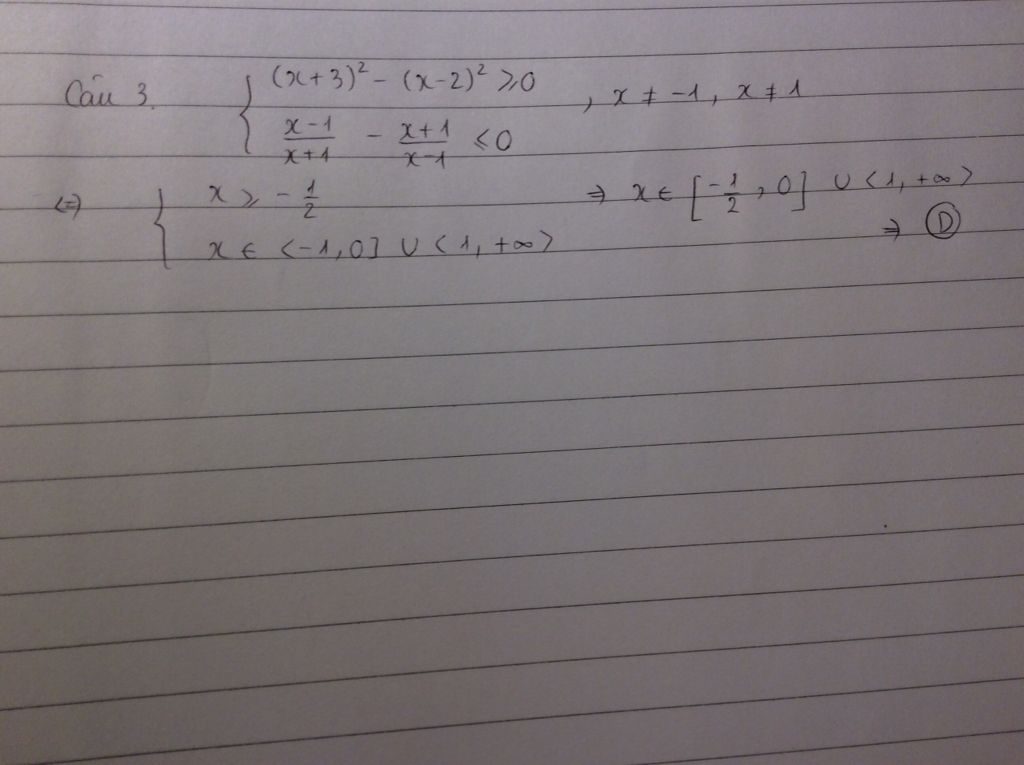 Câu 3. { (x+3)² - (x-2)² ⩾ 0
x-1/x+1 - x+1/x-1 ⩽ 0 , x ≠ -1, x ≠ 1
<=> { x ⩾ -1/2 => x ∈ [-1/2, 0] ∪ <1, +∞>
x ∈ <-1, 0] ∪ <1, +∞> => Ⓓ